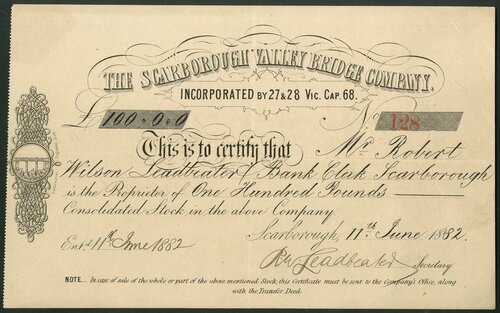 THE SCARBOROUGH VALLEY BRIDGE COMPANY.
INCORPORATED BY 27 & 28 VIC. CAP. 68.
£ 100 " 0 " 0
No. 128
This is to certify that Mr. Robert
Wilson Leadbeater Bank Clerk Scarborough
is the Proprietor of One Hundred Pounds
Consolidated Stock in the above Company.
Scarborough, 11th June 1882.
Entd. 11th June 1882
RW Leadbeater Secretary
NOTE... In case of sale of the whole or part of the above mentioned Stock, this Certificate must be sent to the Company's Office, along
with the Transfer Deed.